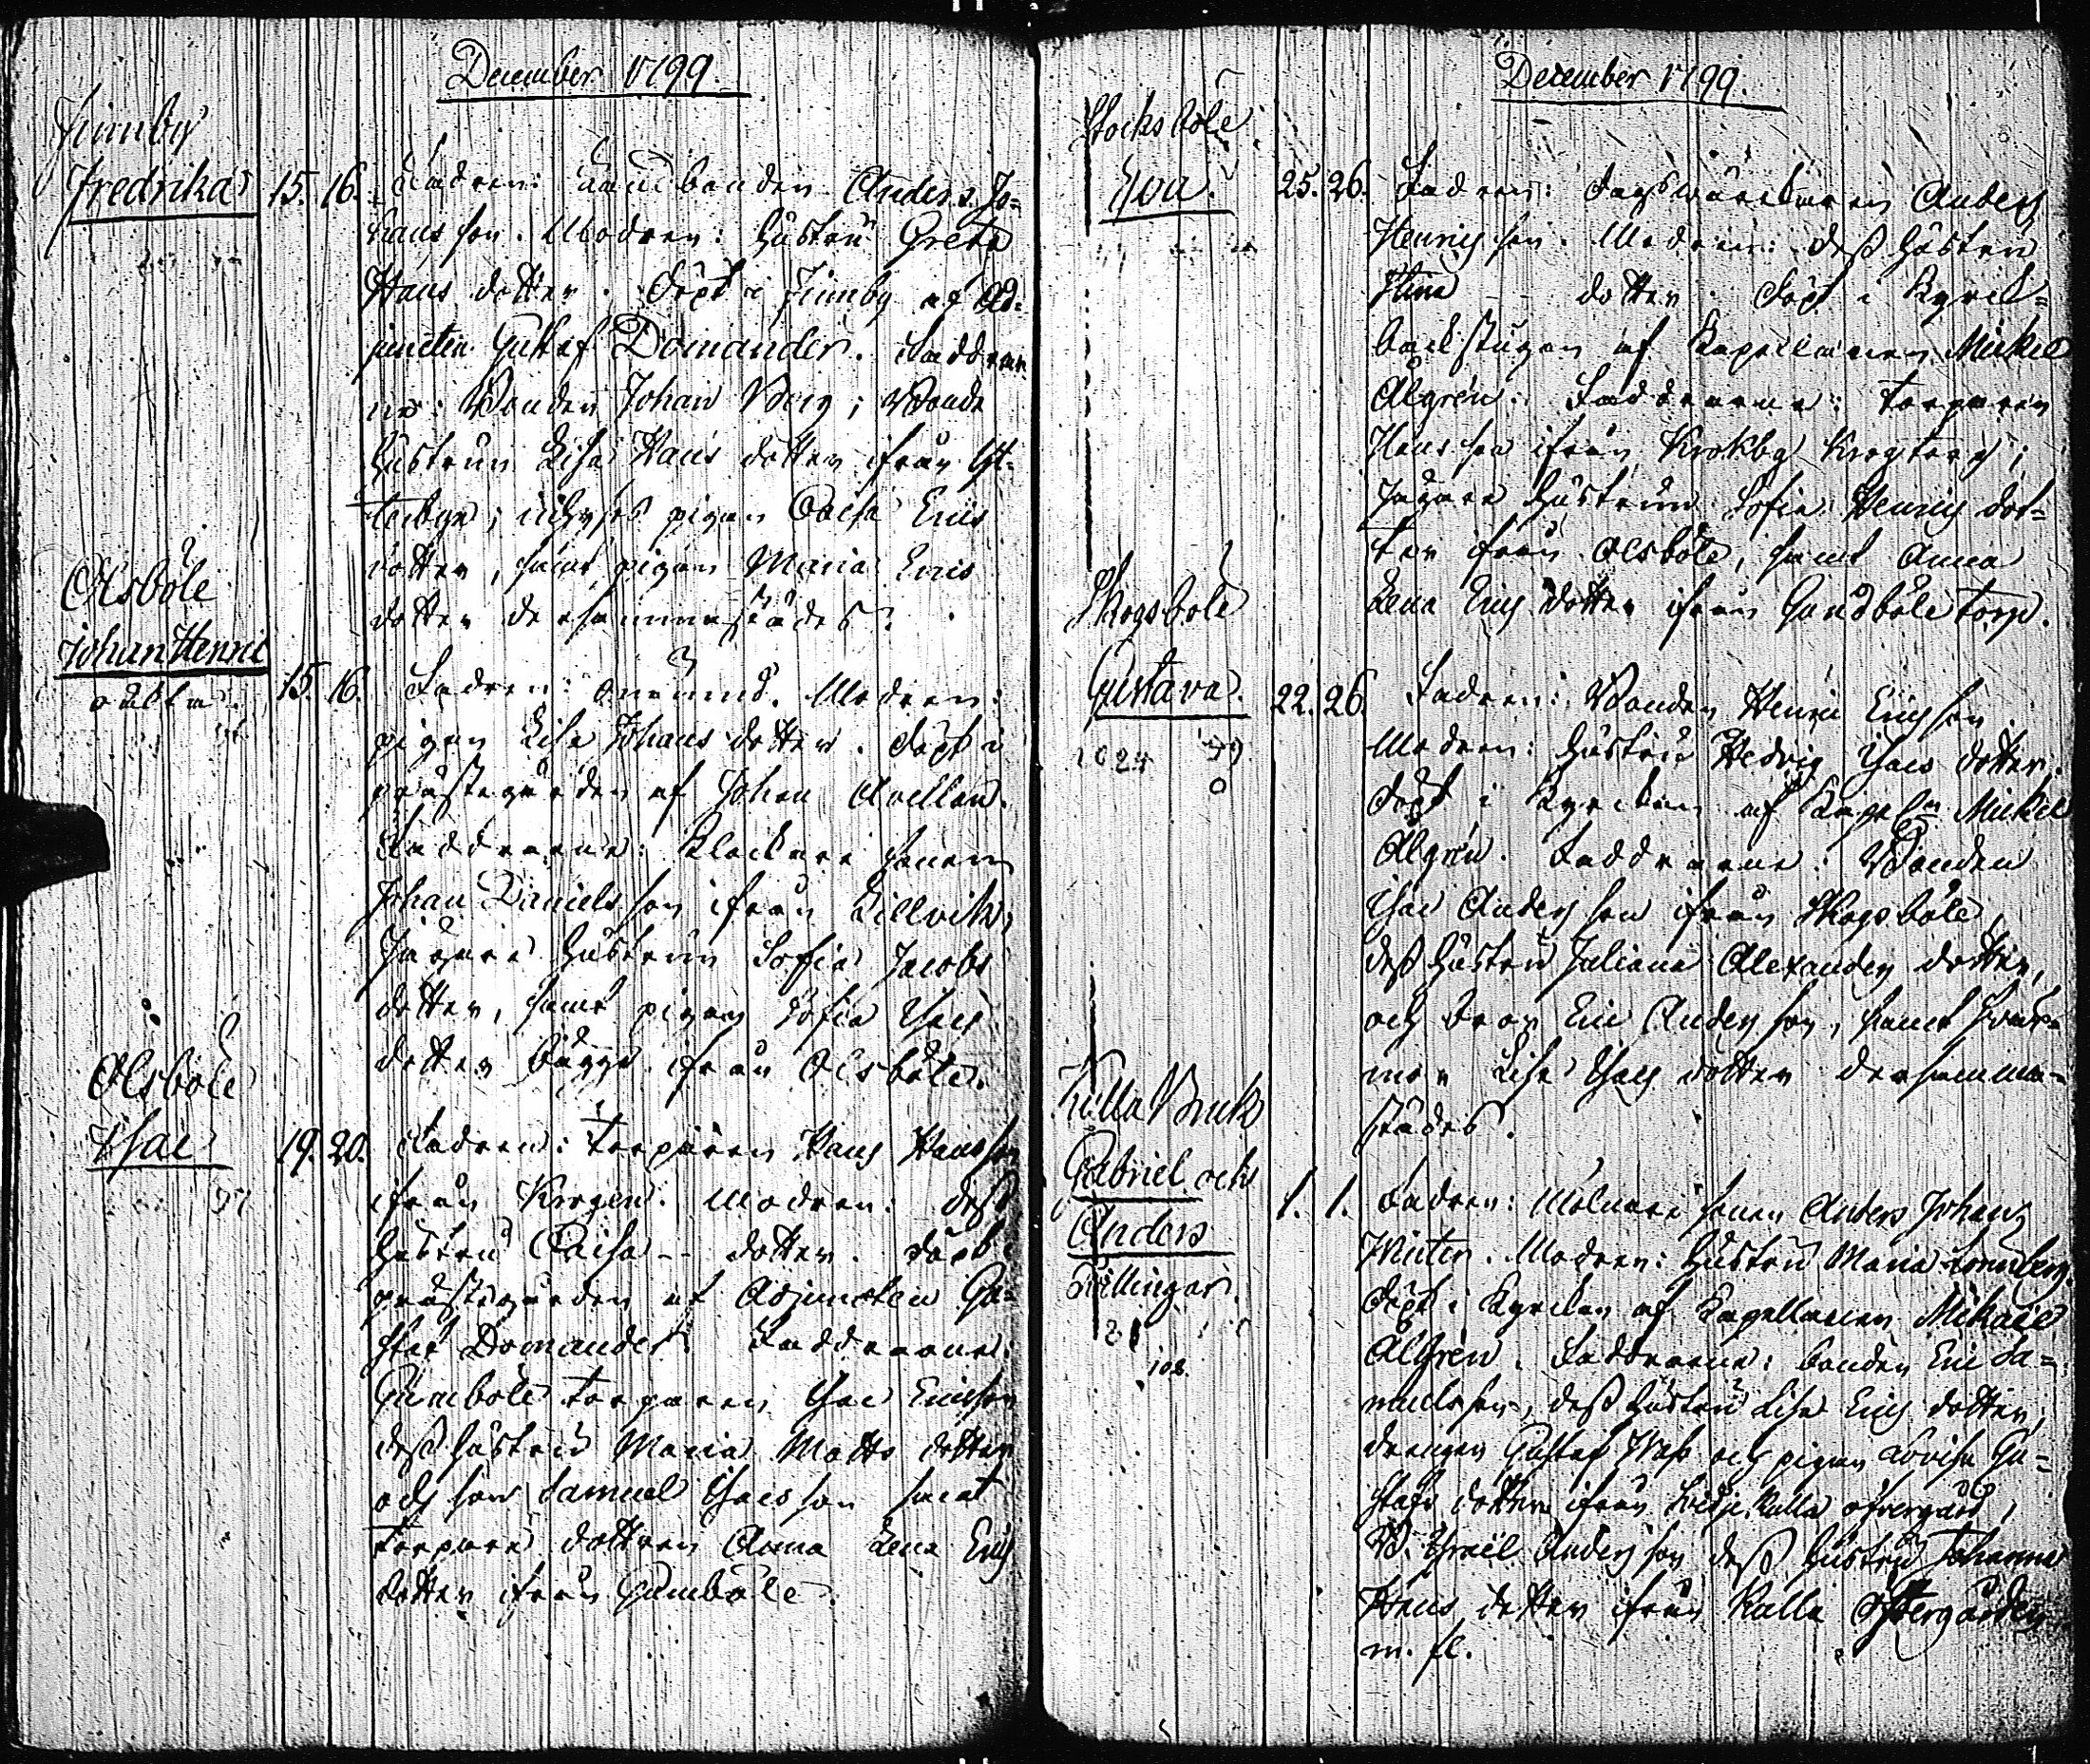 December 1799.
Finnby
Fredrika 15. 16. Fadren: Landbonden Anders Jo=
hans son. Modren: hustru Greta
Hans dotter. döpt i Finnby af Ad=
juncten Gustaf Domander. Faddrar
ne: Bonden Johan Berg; Bonde
hustrun Lisa Hans dotter ifrån
pigan Caisa Erics
dotter, samt pigan Maria Erics
dotter dersammastädes.
Olsböle
Johan Henric
oäkta. 15. 16. Fadren: onämnd. Modren:
pigan Lisa Johans dotter. döpt i
prästegården af Johan Avellan.
Faddrarne: Klockare sonen
Johan Daniels son ifrån Lillvik,
Jägare hustrun Sofia Jacobs
dotter, samt pigan Sofia Isacs
dotter bägge ifrån Olsböle.
Olsböle
Isac 19. 20. Fadren: torparen Hans Hansson
ifrån Krogen. Modren: dess
hustru Caisa -- dotter. döpt i
prästegården af Adjuncten Gu=
staf Domander. Faddrarne:
Gumböle torparen Isac Ericsson
dess hustru Maria Matts dotter
och son Samuel Isacsson samt
torpare dottren Anna Lena Erics
dotter ifrån Gumböle.
December 1799.
Stocksböle
Eva. 25. 26. Fadren: Anders
Henrics son. Modren: dess hustru
Stina -- dotter. döpt i Kyrck=
backstugan af Kapellanen Mickel
Algrén. Faddrarne: torparen
Hans son ifrån Krokby Krogtorp;
Jägare hustrun Sofia Henrics dot=
ter ifrån Olsböle, samt Anna
Lena Erics dotter ifrån torp.
Skogsböle
Gustava. 22. 26. Fadren: Bonden Henric Ericsson
1024 Modren: hustru Hedvig Isacs dotter.
döpt i Kyrckan af Mickel
Algrén. Faddrarne: Bonden
Isac Anders son ifrån Skogsböle,
dess hustru Juliana Alexanders dotter,
och bror Eric Anders son, samt svär=
mor Lisa Isacs dotter dersamma=
städes.
Kulla Bruk
Gabriel och 1. 1. Fadren: Molnare sonen Anders Johans
Anders Winter. Modren: hustru Maria
Tvillingar. döpt i Kyrckan af Kapellanen Mikaël
Algrén. Faddrarne: bonden Eric Sa=
108. muelsson, dess hustru Lisa Erics dotter,
drengen Gustaf och pigan Lovisa Gu=
stafs dotter ifrån Kulla öfvergård,
B. Israël Anders son dess hustru Johanna
Hans dotter ifrån Kulla
m. fl.